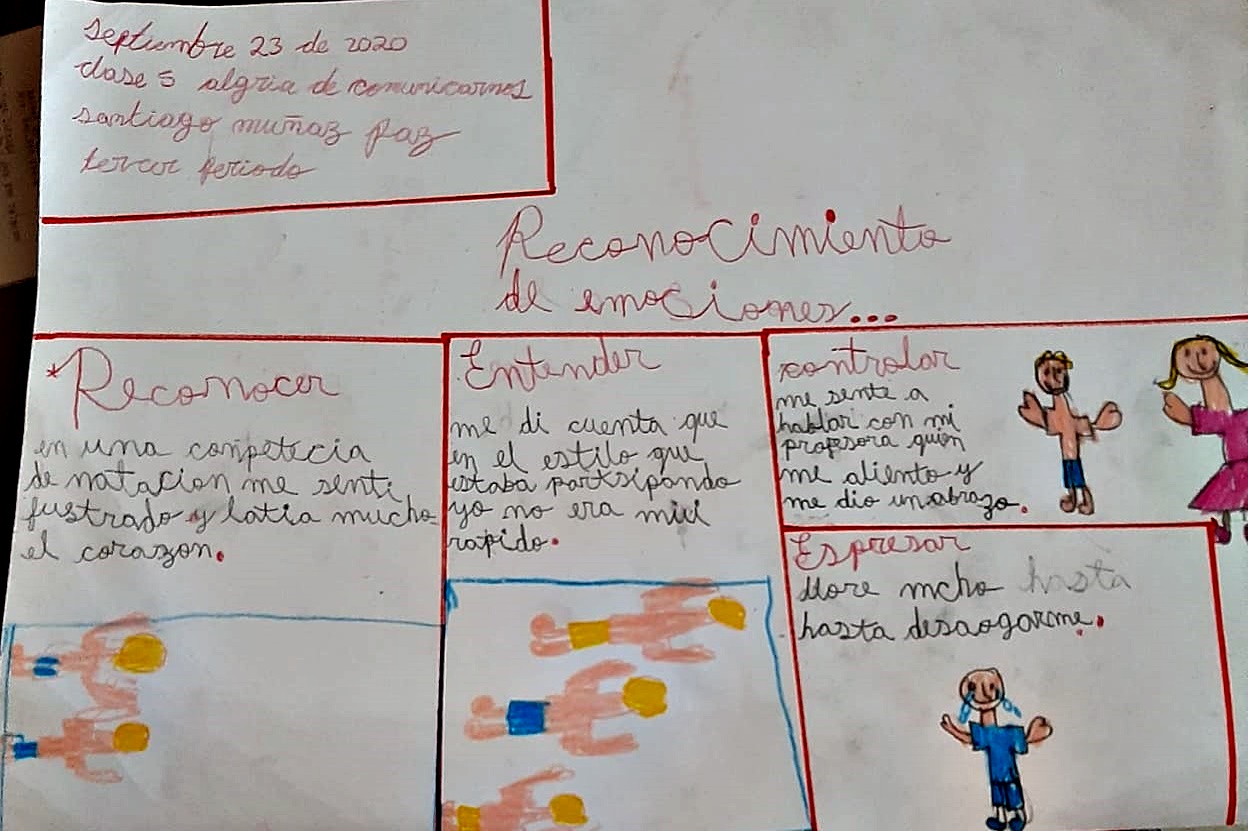 Septiembre 23 de 2020
clase 5 algria de comunicarnos
santiago muñaz paz
tercer periodo
Reconocimiento
de emociones...
*Reconocer
en una conpetecia
de natacion me senti
fustrado y latia mucho
el corazon.
Entender
me di cuenta que
en el estilo que
estaba partsipando
yo no era mui
rapido.
controlar
me sente a
hablar con mi
propsora quien
me aliento y
me dio un abrazo.
Espresar
llore mcho hasta
hasta desaogarme.